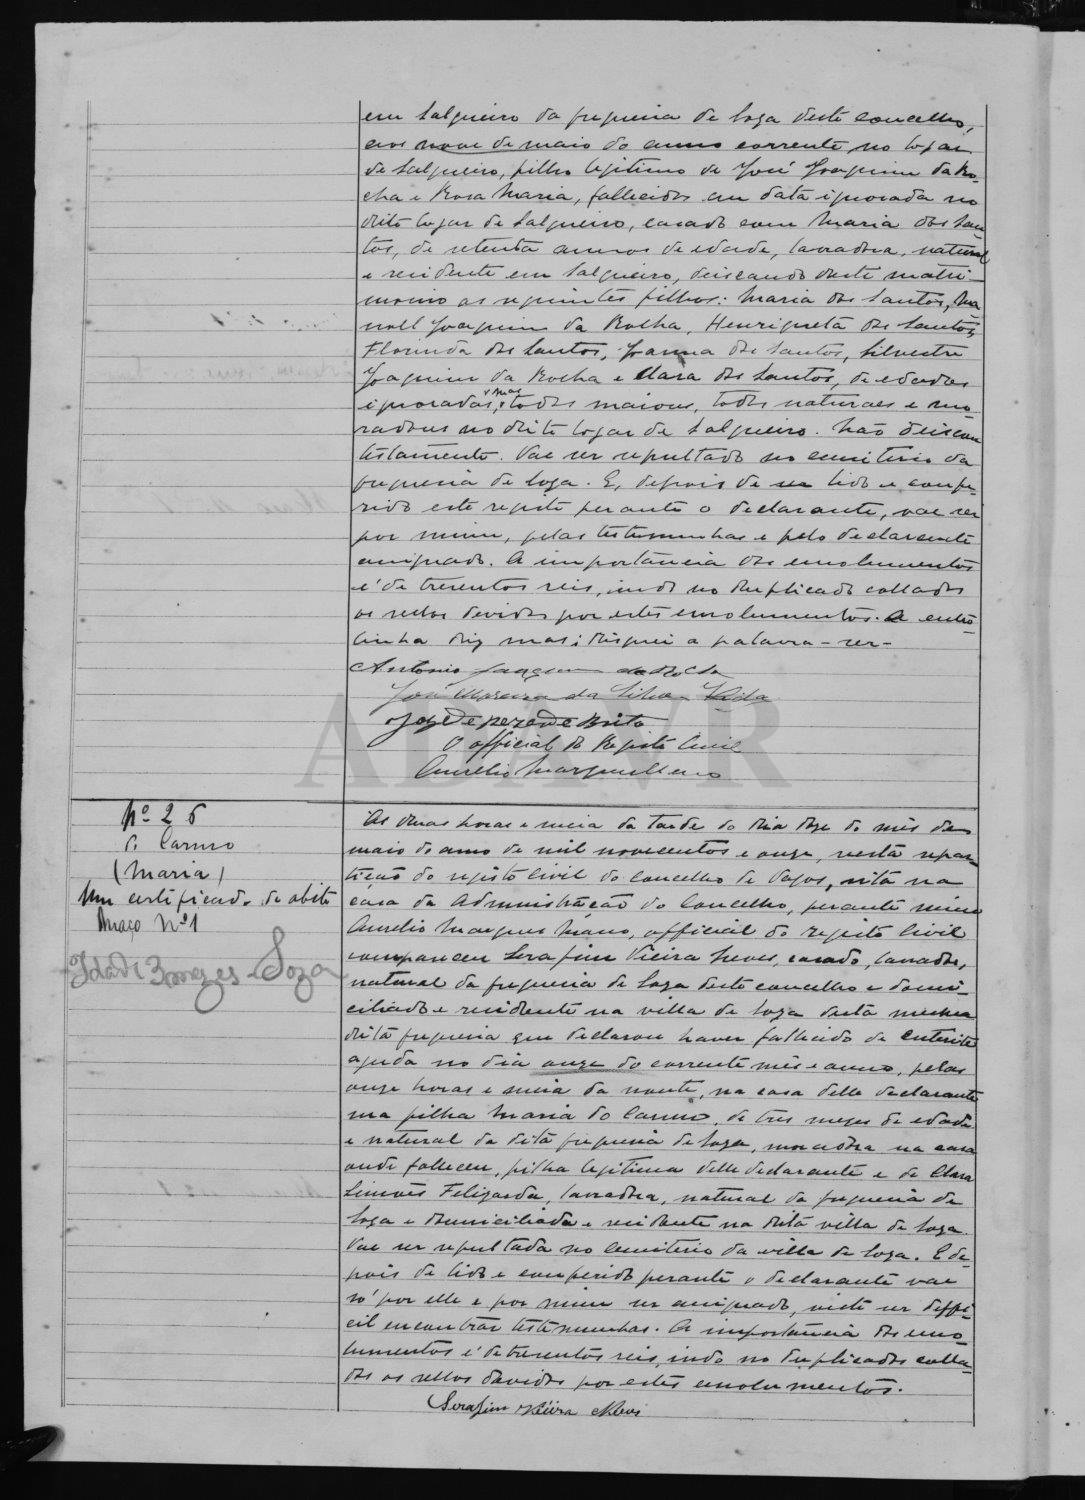 em Salgueiro da freguesia de Soza deste concelho,
aos nove de maio do anno corrente, no logar
de Salgueiro, filho legitimo de José Joaquim da Ro-
cha e Rosa Maria, fallecidos em data ignorada no
dito logar de Salgueiro, casado com Maria dos San-
tos, de setenta annos de edade, lavradora, natural
e residente em Salgueiro, deixando deste matri-
monio os seguintes filhos: Maria dos Santos, Ma-
noel Joaquim da Rocha, Henriqueta dos Santos,
Florinda dos Santos, Joanna dos Santos, Silvestre
Joaquim da Rocha e Clara dos Santos, de edades
ignoradas, mas todos maiores, todos naturaes e mo-
radores no dito logar de Salgueiro. Não deixou
testamento. Vae ser sepultado no cemiterio da
freguesia de Soza. E, depois de ser lido e confe-
rido este registo perante o declarante, vae ser
por mim, pelas testemunhas e pelo declarante
assignado. A importancia dos emolumentos
é de tresentos reis, indo no duplicado collados
os sellos devidos por estes emolumentos. A entre-
linha diz mas; risquei a palavra - ser -
Antonio Joaquim da Rocha
José Moreira da Silva Vida
José de Brito
O official do Registo Civil
Aurelio Marques Mano
ADAVR
Nº 26
do Carmo
(Maria)
Um certificado de obito
Maço Nº 1
Idade 3 mezes - Soza
As duas horas e meia da tarde do dia doze do mês de
maio do anno de mil novecentos e onze, nesta repar-
tição do registo civil do concelho de Vagos, sita na
casa da Administração do Concelho, perante mim
Aurelio Marques Mano, official do registo civil
compareceu Serafim Vieira Neves, casado, lavrador,
natural da freguesia de Soza deste concelho e domi-
ciliado e residente na villa de Soza desta mesma
dita freguesia que declarou haver fallecido de enterite
aguda no dia onze do corrente mês e anno, pelas
onze horas e meia da noute, na casa delle declarante
sua filha Maria do Carmo, de tres mezes de edade
e natural da dita freguesia de Soza, moradora na casa
onde falleceu, filha legitima delle declarante e de Clara
Simões Felizarda, lavradora, natural da freguesia de
Soza e domiciliada e residente na dita villa de Soza.
Vae ser sepultada no Cemiterio da villa de Soza. E de-
pois de lido e conferido perante o declarante vae
só por elle e por mim ser assignado, visto ser diffi-
cil encontrar testemunhas. A importancia dos emo-
lumentos é de tresentos reis, indo no duplicado colla-
dos os sellos devidos por estes emolumentos.
Serafim Vieira Neves